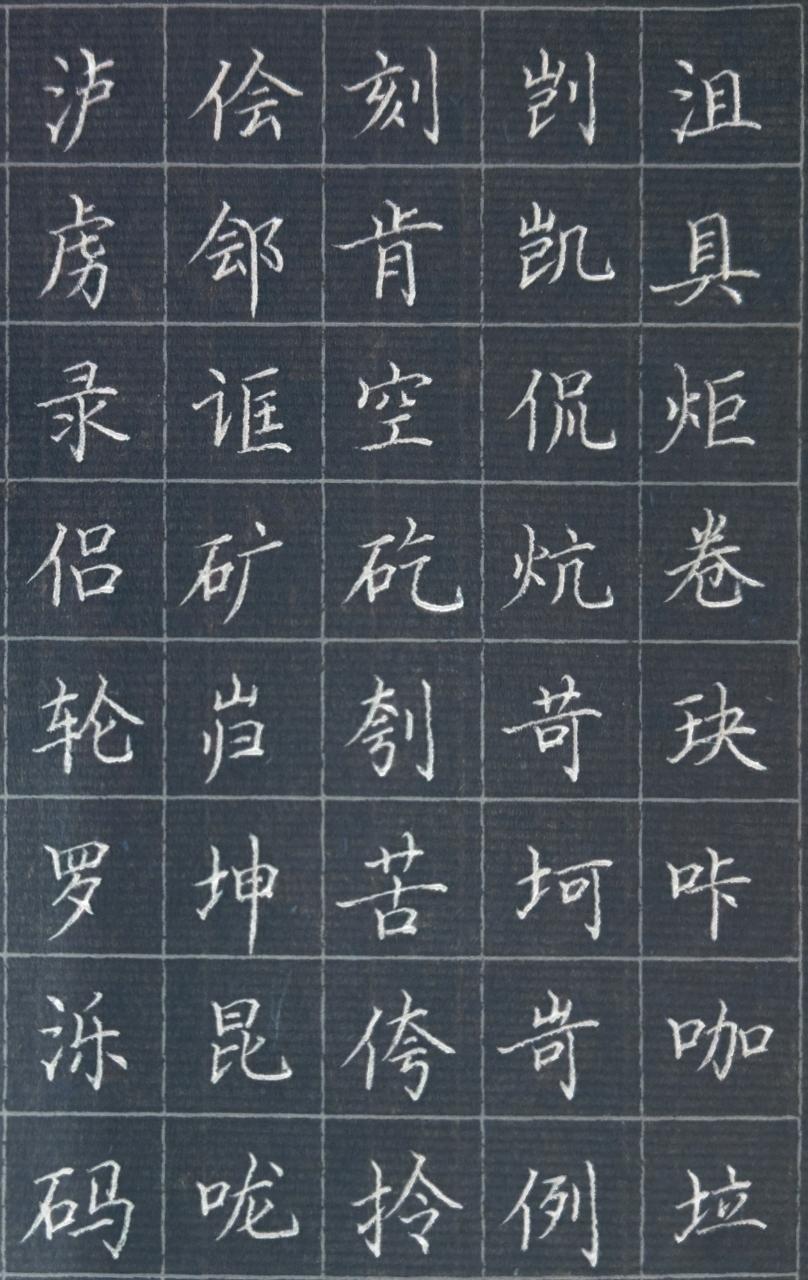 沮具炬卷玦咔咖垃
剀凯侃炕苛坷岢例
刻肯空矻刳苦侉拎
侩郐诓矿岿坤昆咙
泸虏录侣轮罗泺码